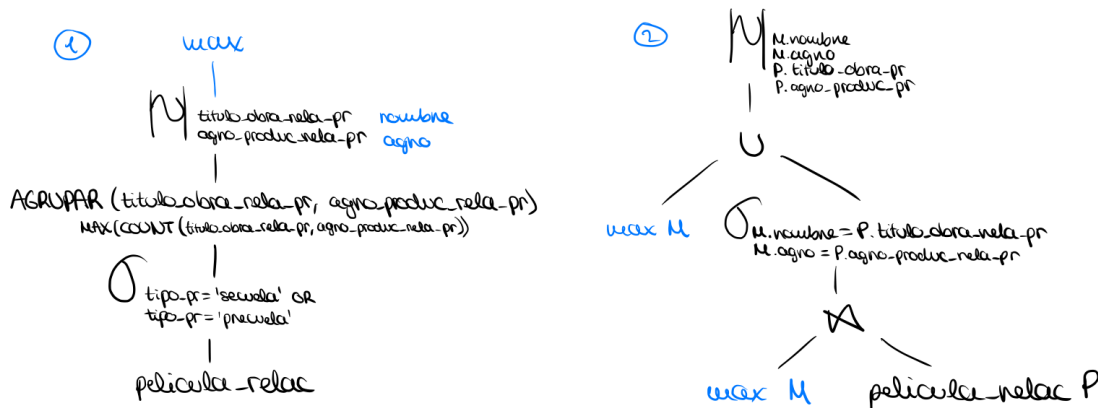 1
max
titulo_obra_rela_pr nombre
agno_produc_rela_pr agno
AGRUPAR (titulo_obra_rela_pr, agno_produc_rela_pr)
MAX(COUNT(titulo_obra_rela_pr, agno_produc_rela_pr))
σ
tipo_pr = 'secuela' OR
tipo_pr = 'precuela'
pelicula_relac
2
M.nombre
M.agno
P.titulo_obra_pr
P.agno_produc_pr
∪
max M
σ M.nombre = P.titulo_obra_rela_pr
M.agno = P.agno_produc_rela_pr
⋈
max M pelicula_relac P